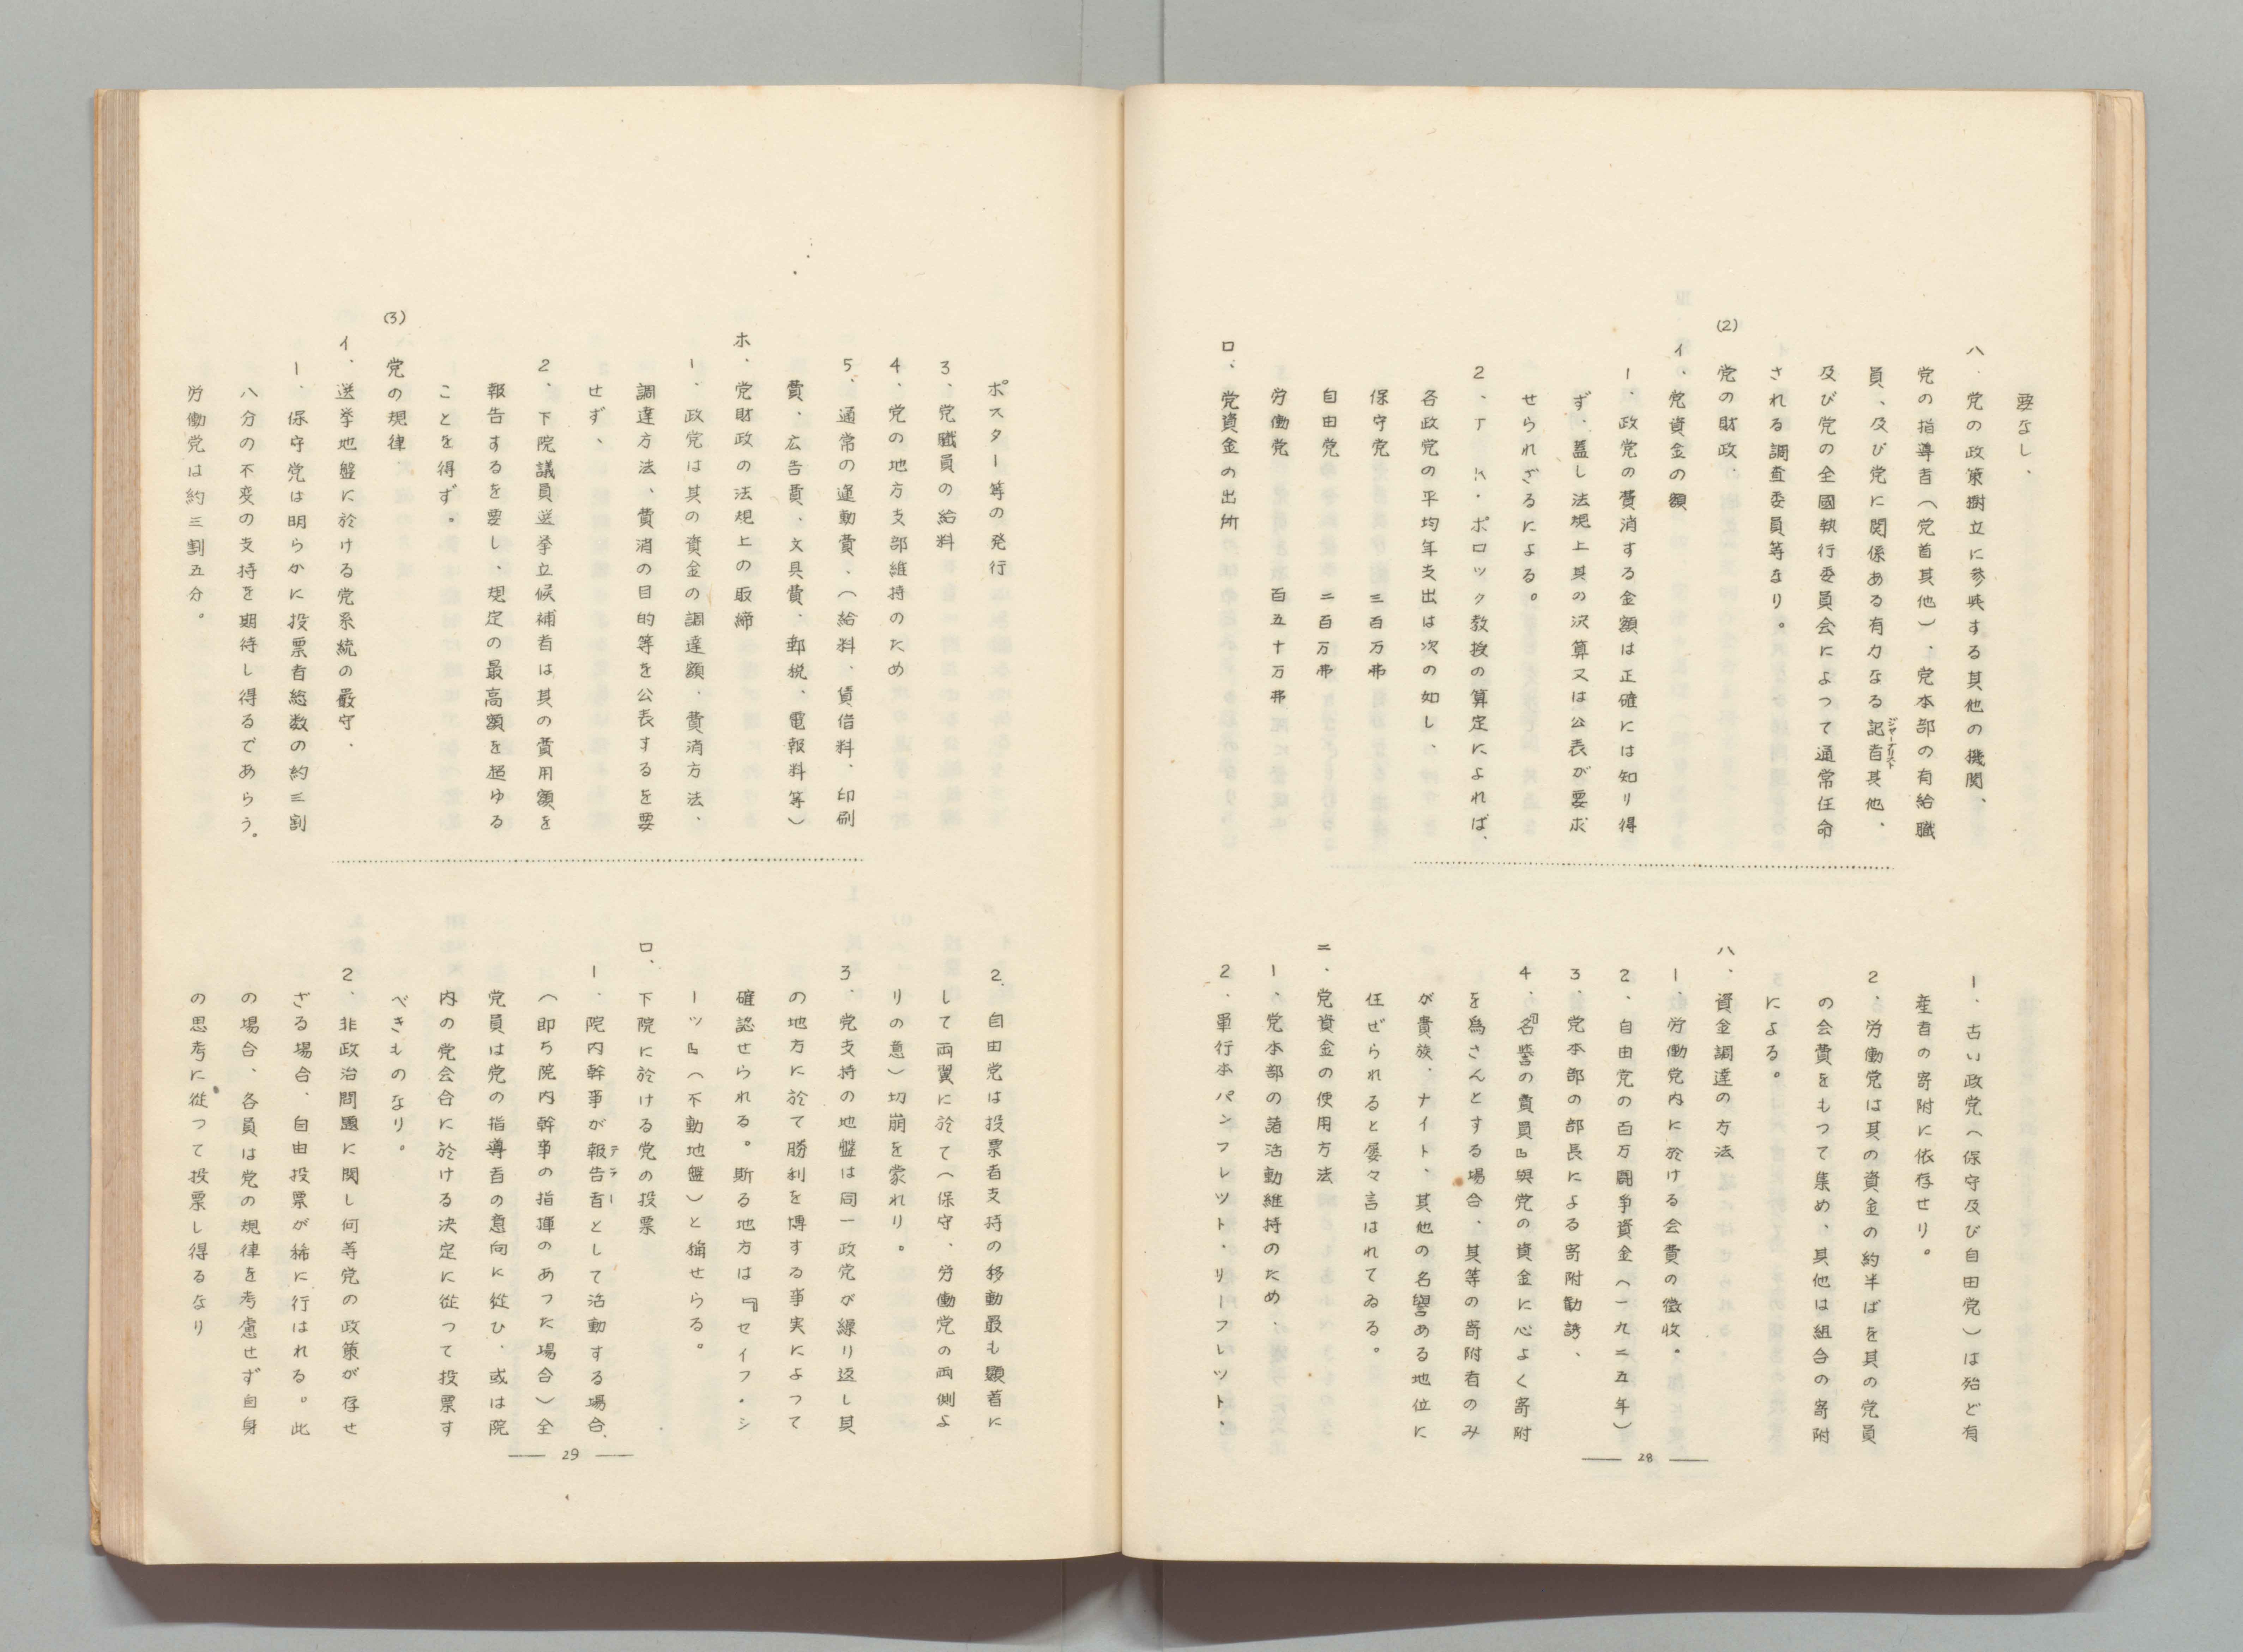 要なし、
ハ．党の政策樹立に参映する其他の機関、
党の指導者（党首其他）、党本部の有給職
員、及び党に関係ある有力なる記者其他、
ジャーナリスト
及び党の全國執行委員会によつて通常任命
される調査委員等なり。
(2) 党の財政、
イ、党資金の額
1．政党の費消する金額は正確には知り得
ず、蓋し法規上其の決算又は公表が要求
せられざるによる。
2、 ・ポロック教授の算定によれば、
各政党の平均年支出は次の如し、
保守党 三百万弗
自由党 二百万弗
労働党 百五十万弗
ロ、党資金の出所
1．古い政党（保守及び自由党）は殆ど有
産者の寄附に依存せり。
2．労働党は其の資金の約半ばを其の党員
の会費をもつて集め、其他は組合の寄附
による。
ハ、資金調達の方法
1．労働党内に於ける会費の徴收。
2．自由党の百万闘争資金（一九二五年）
3．党本部の部長による寄附勧誘、
4．『名譽の賣員』與党の資金に心よく寄附
を爲さんとする場合、其等の寄附者のみ
が貴族、ナイト、其他の名譽ある地位に
任ぜられると屡々言はれてゐる。
ニ．党資金の使用方法
1、党本部の諸活動維持のため、
2．單行本パンフレツト・リーフレツト・
28
ポスター等の発行
3、党職員の給料
4．党の地方支部維持のため
5．通常の運動費、（給料、賃借料、印刷
費、広告費、文具費、郵税、電報料等）
ホ．党財政の法規上の取締
1．政党は其の資金の調達額、費消方法、
調達方法、費消の目的等を公表するを要
せず、
2、下院議員選挙立候補者は其の費用額を
報告するを要し、規定の最高額を超ゆる
ことを得ず。
(3) 党の規律
イ．選挙地盤に於ける党系統の嚴守．
1．保守党は明らかに投票者総数の約三割
八分の不変の支持を期待し得るであらう。
労働党は約三割五分。
2．自由党は投票者支持の移動最も顕著に
して両翼に於て（保守、労働党の両側よ
りの意）切崩を蒙れり。
3．党支持の地盤は同一政党が繰り返し其
の地方に於て勝利を博する事実によつて
確認せられる。斯る地方は『セイフ・シ
ーツ』（不動地盤）と稱せらる。
ロ、下院に於ける党の投票
1．院内幹事が報告者として活動する場合、
テラー
（即ち院内幹事の指揮のあつた場合）全
党員は党の指導者の意向に從ひ、或は院
内の党会合に於ける決定に從つて投票す
べきものなり。
2．非政治問題に関し何等党の政策が存せ
ざる場合、自由投票が稀に行はれる。此
の場合、各員は党の規律を考慮せず自身
の思考に從つて投票し得るなり
29